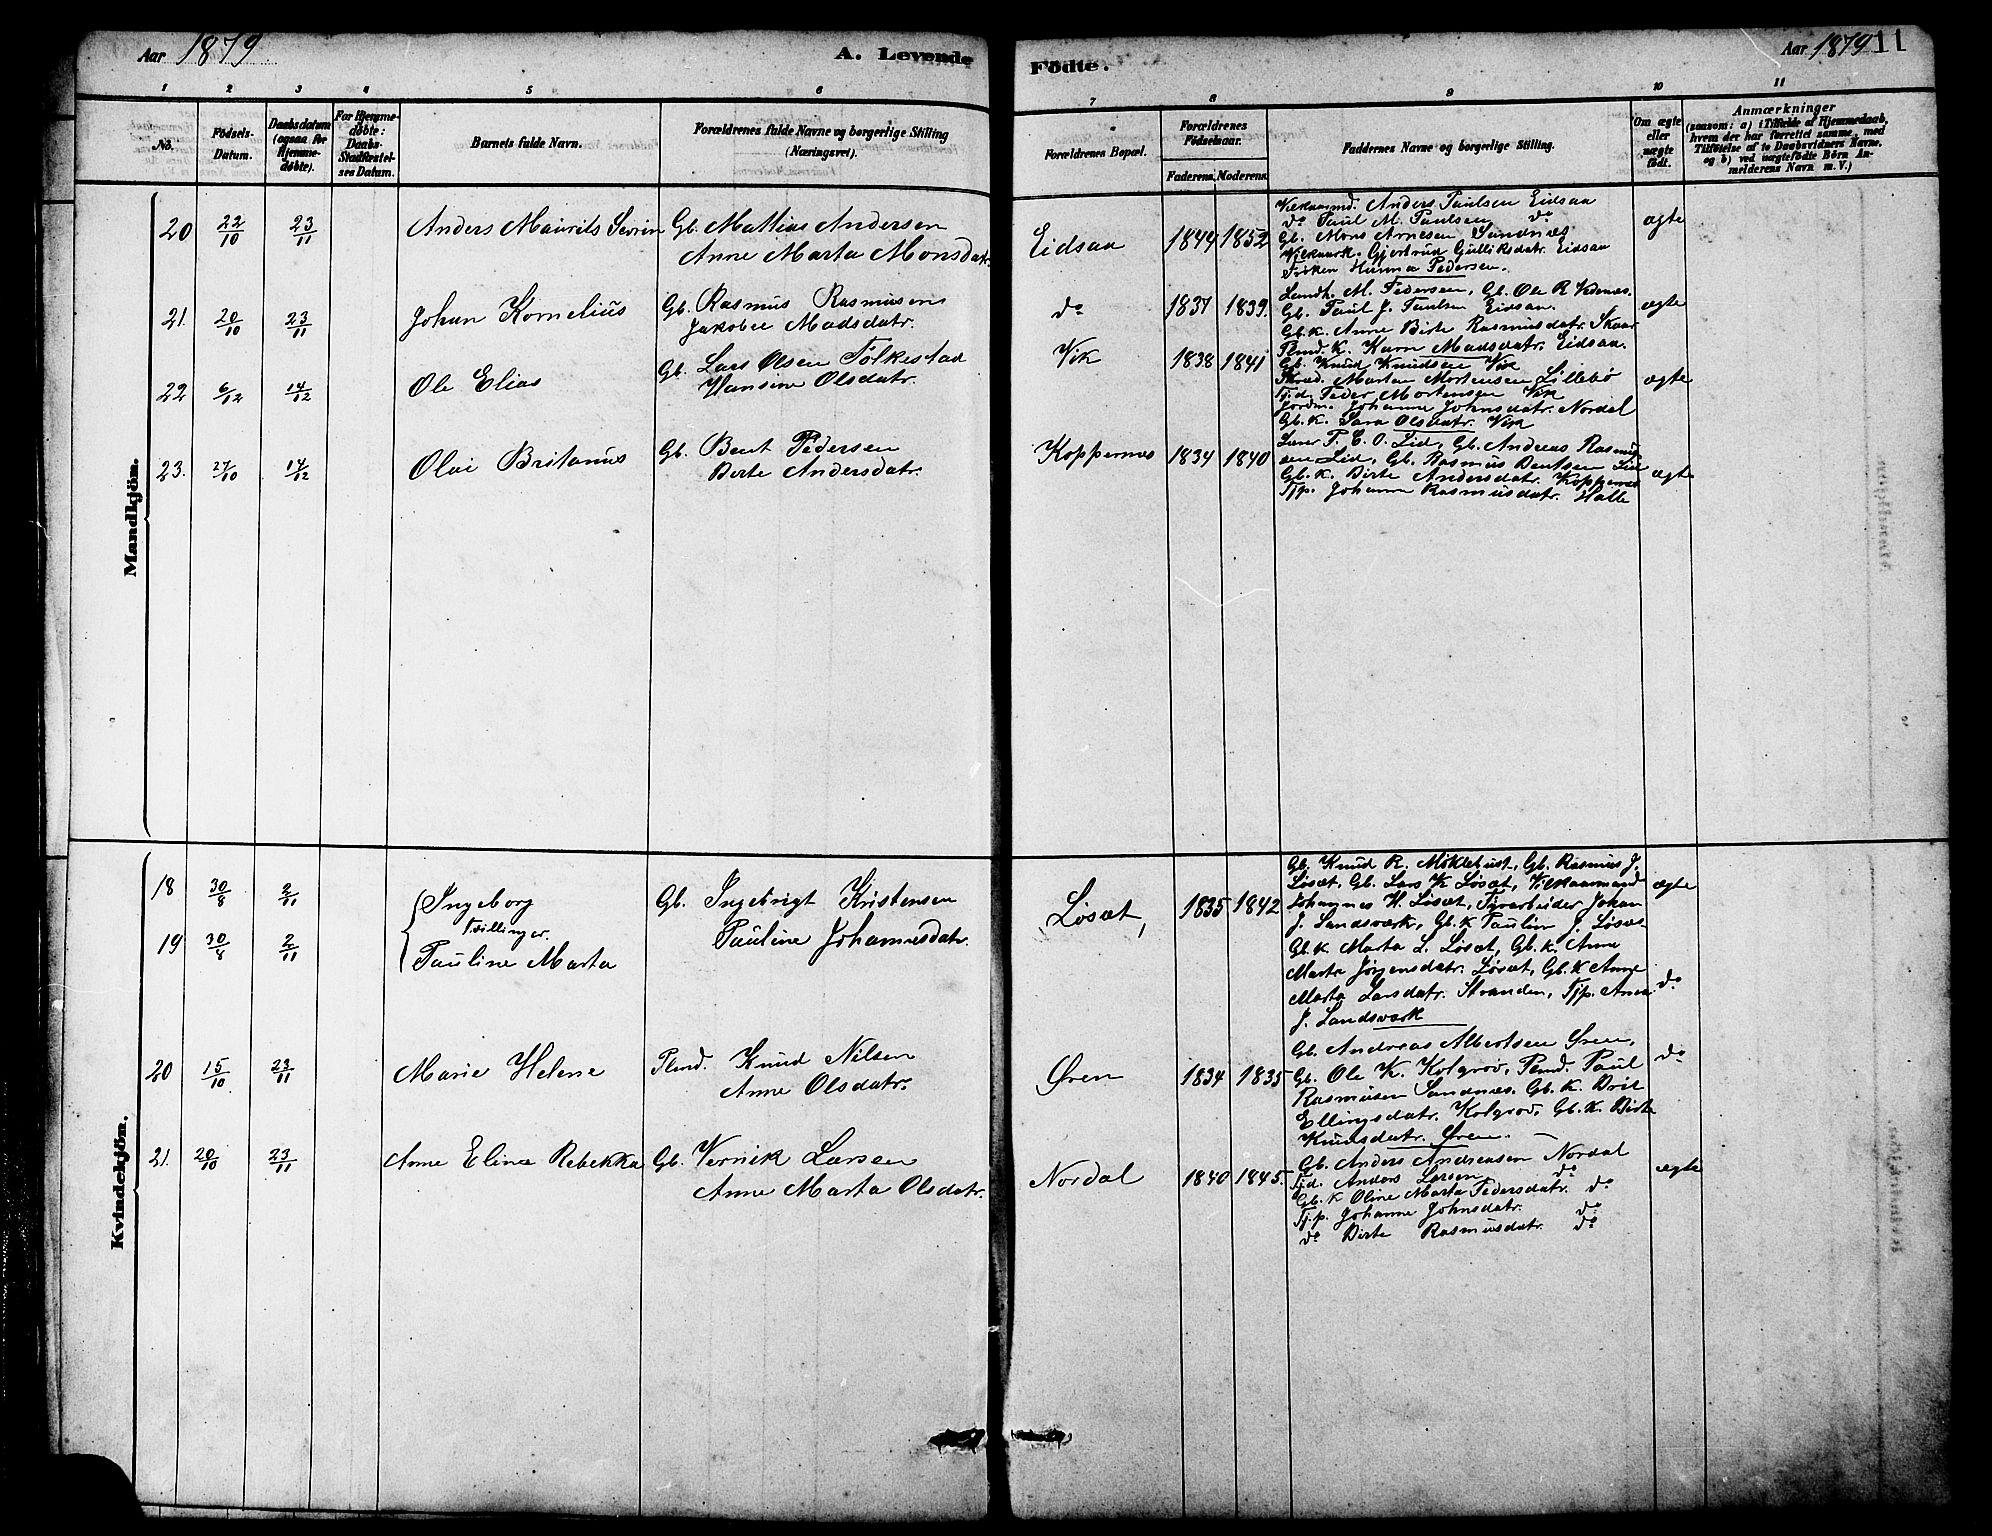 Aar 1879.
A. Levende
1 2 3 4 5 6
No.
Fødsels-Datum.
Daabsdatum (ogsaa for Hjemmedøbte).
For Hjemmedøbte: Daabs-Stadfæstelses Datum.
Barnets fulde Navn.
Forældrenes fulde Navne og borgerlige Stilling (Næringsvei).
Mandkjön.
20 22/10 23/11 Anders Maurits Sevrin Gb. Mathias Andersen
Anne Marta Monsdatr.
21. 20/10 23/11 Johan Kornelius Gb. Rasmus Rasmusen
Jakobee Madsdatr.
22 6/12 14/12 Ole Elias Gb. Lars Olsen Folkestad
Hansine Olsdatr.
23. 27/10 14/12 Olai Britanus Gb. Bent Pedersen
Birte Andersdatr.
Kvindekjön.
18 30/8 2/11 Ingeborg Gb. Ingebrigt Kristensen
Tvillinger.
19 30/8 2/11 Pauline Marta Pauline Johannesdatr.
20 15/10 23/11 Marie Helene Plmd. Knud Nilsen
Anne Olsdatr.
21. 20/10 23/11 Anne Elina Rebekka Gb. Vernik Larsen
Anne Marta Olsdatr.
Födte.
Aar 1879
11
7 8 9 10 11
Forældrenes Bopæl.
Forældrenes Fødselsaar.
Faderens. Moderens.
Faddernes Navne og borgerlige Stilling.
Om ægte eller uægte født.
Anmærkninger
(saasom: a) i Tilfælde af Hjemmedaab,
hvem der har forrettet samme, med
Tilføielse af to Daabsvidners Navne,
og b) ved uægtefødte Børn An-
melderens Navn m. V.)
Eidsaa 1844 1852 ægte
Vilkaarmd. Anders Paulsen Eidsaa
do Paul M. Paulsen do
Gb. Mons Arnesen Sandnæs
Vilkaark. Gjertrud Gulliksdatr. Eidsaa
Frøken Hanna Pedersen.
do 1837 1839. ægte
Landh. M. Pedersen, Gb. Ole R.
Gb. Paul J. Paulsen Eidsaa.
Gb.k. Anne Birte Rasmusdatr. Skaar
Plmd.k. Karn Madsdatr. Eidsaa.
Vik 1838 1841 ægte
Gb. Knud Knudsen Vik
Skræd. Martin Mortensen Lillebø
Tjd. Peder Mortensen Vik
Jordm. Johanne Johnsdatr. Nordal
Gb.k. Sara Olsdatr. Vik
Koppernæs 1834 1840 ægte
Lærer P. E. O. Lid, Gb. Andreas Rasmus-
sen Lid, Gb. Rasmus Bentsen Lid
Gb.k. Birte Andersdatr. Koppernæs
Tjp. Johanne Rasmusdatr. Halle
Løsæt, 1835 1842 ægte
Gb. Knud R. Møklebust, Gb. Rasmus J.
Løsæt, Gb. Lars K. Løsæt, Vilkaarmand
Johannes H. Løsæt, Johan
J. Landsværk, Gb.k Paulin J. Løsæt
Gb.k Marta L. Løsæt, Gb.k. Anne
Marta Jørgensdatr. Løsæt, Gb.k Anne
Marta Larsdatr. Stranden, Tjp. Anna do
J. Landsværk
Øren 1834 1835 do
Gb. Andreas Albertsen Øren,
Gb. Ole K. Kolgrov, Plmd. Paul
Rasmusen Sandnæs. Gb. K. Brit
Ellingsdatr. Kolgrov, Gb.k. Birte
Knudsdatr. Øren.
Nordal 1840 1845. ægte
Gb. Anders Andreasen Nordal
Tjd. Anders Larsen do
Gb.k Oline Marta Pedersdatr. do
Tj.p. Johanne Johnsdatr. do
do Birte Rasmusdatr. do